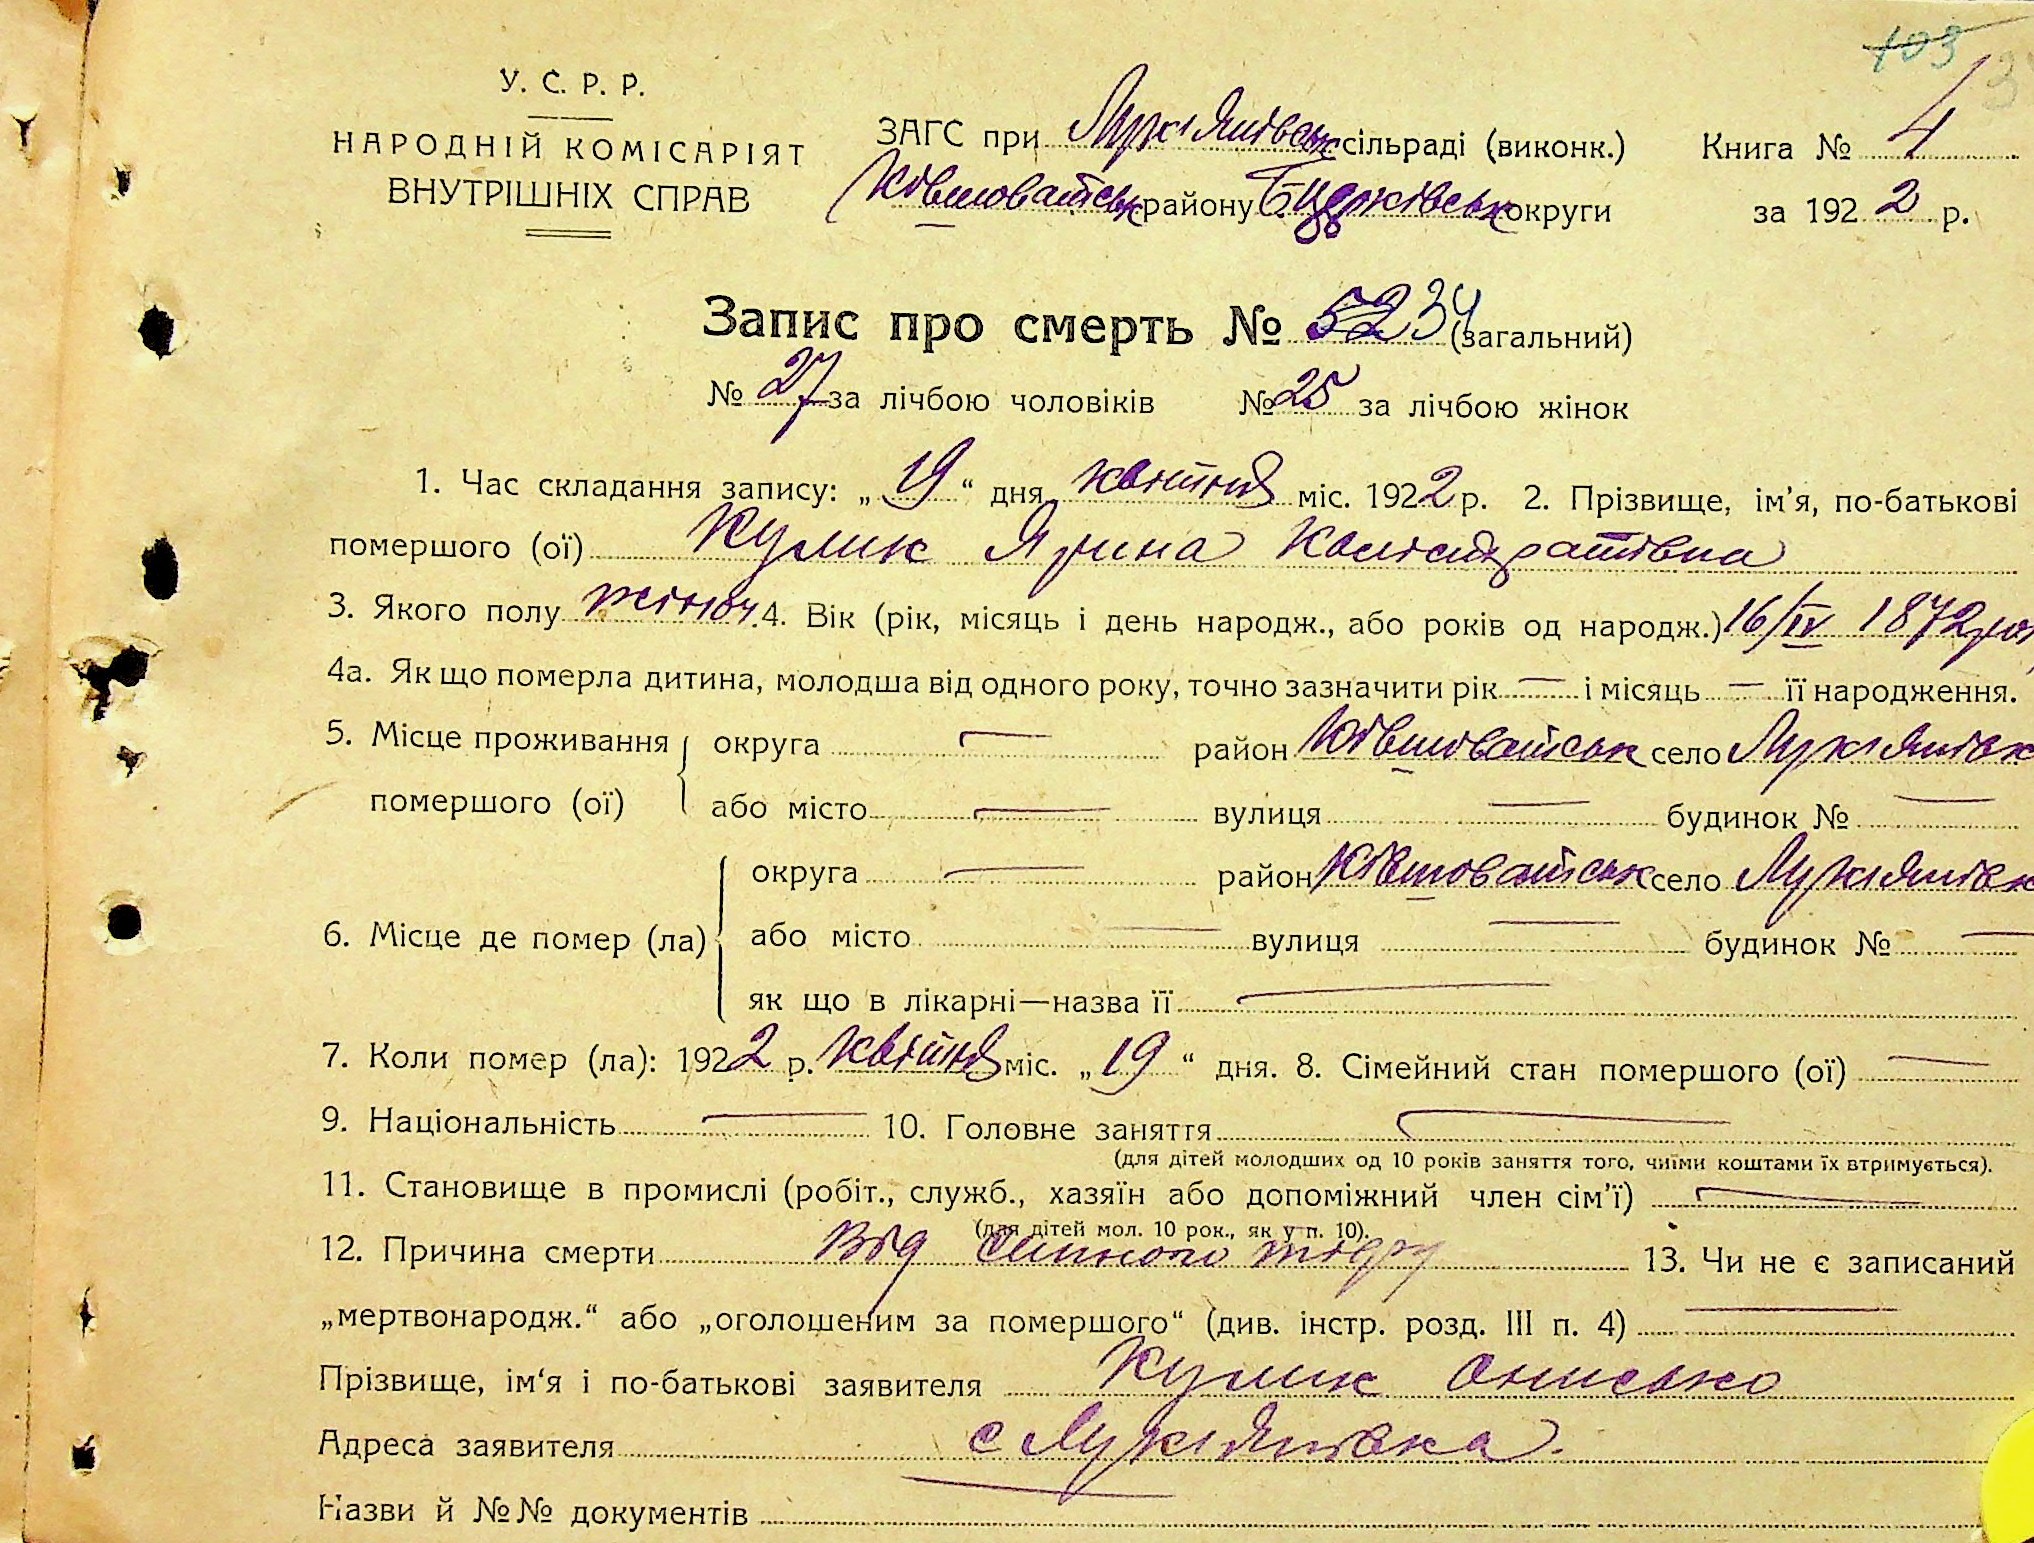 103
У. С. Р. Р.
НАРОДНІЙ КОМІСАРІЯТ
ВНУТРІШНІХ СПРАВ
ЗАГС при Лук'янівськ сільраді (виконк.) Книга № 4
Ківшоватськ району Б. Церківськ округи за 1922 р.
Запис про смерть № 52 34 (загальний)
№ 27 за лічбою чоловіків № 25 за лічбою жінок
1. Час складання запису: „19“ дня квітня міс. 1922 р. 2. Прізвище, ім'я, по-батькові
помершого (ої) Кулик Ярина Калістратівна
3. Якого полу жіноч. 4. Вік (рік, місяць і день народж., або років од народж.) 16/IV 1872 рок
4а. Як що померла дитина, молодша від одного року, точно зазначити рік — і місяць — її народження.
5. Місце проживання округа — район Ківшоватськ село Лук'янівк
помершого (ої) або місто — вулиця — будинок № —
округа — район Ківшоватськ село Лук'янівк
6. Місце де помер (ла) або місто — вулиця — будинок № —
як що в лікарні—назва її —
7. Коли помер (ла): 1922 р. квітня міс. „19“ дня. 8. Сімейний стан помершого (ої) —
9. Національність — 10. Головне заняття —
(для дітей молодших од 10 років заняття того, чиїми коштами їх втримується).
11. Становище в промислі (робіт., служб., хазяїн або допоміжний член сім'ї) —
(для дітей мол. 10 рок., як у п. 10).
12. Причина смерти Від сипного тіфу 13. Чи не є записаний
„мертвонародж.“ або „оголошеним за помершого“ (див. інстр. розд. III п. 4) —
Прізвище, ім'я і по-батькові заявителя Кулик Онисько
Адреса заявителя с Лук'янівка.
Назви й №№ документів